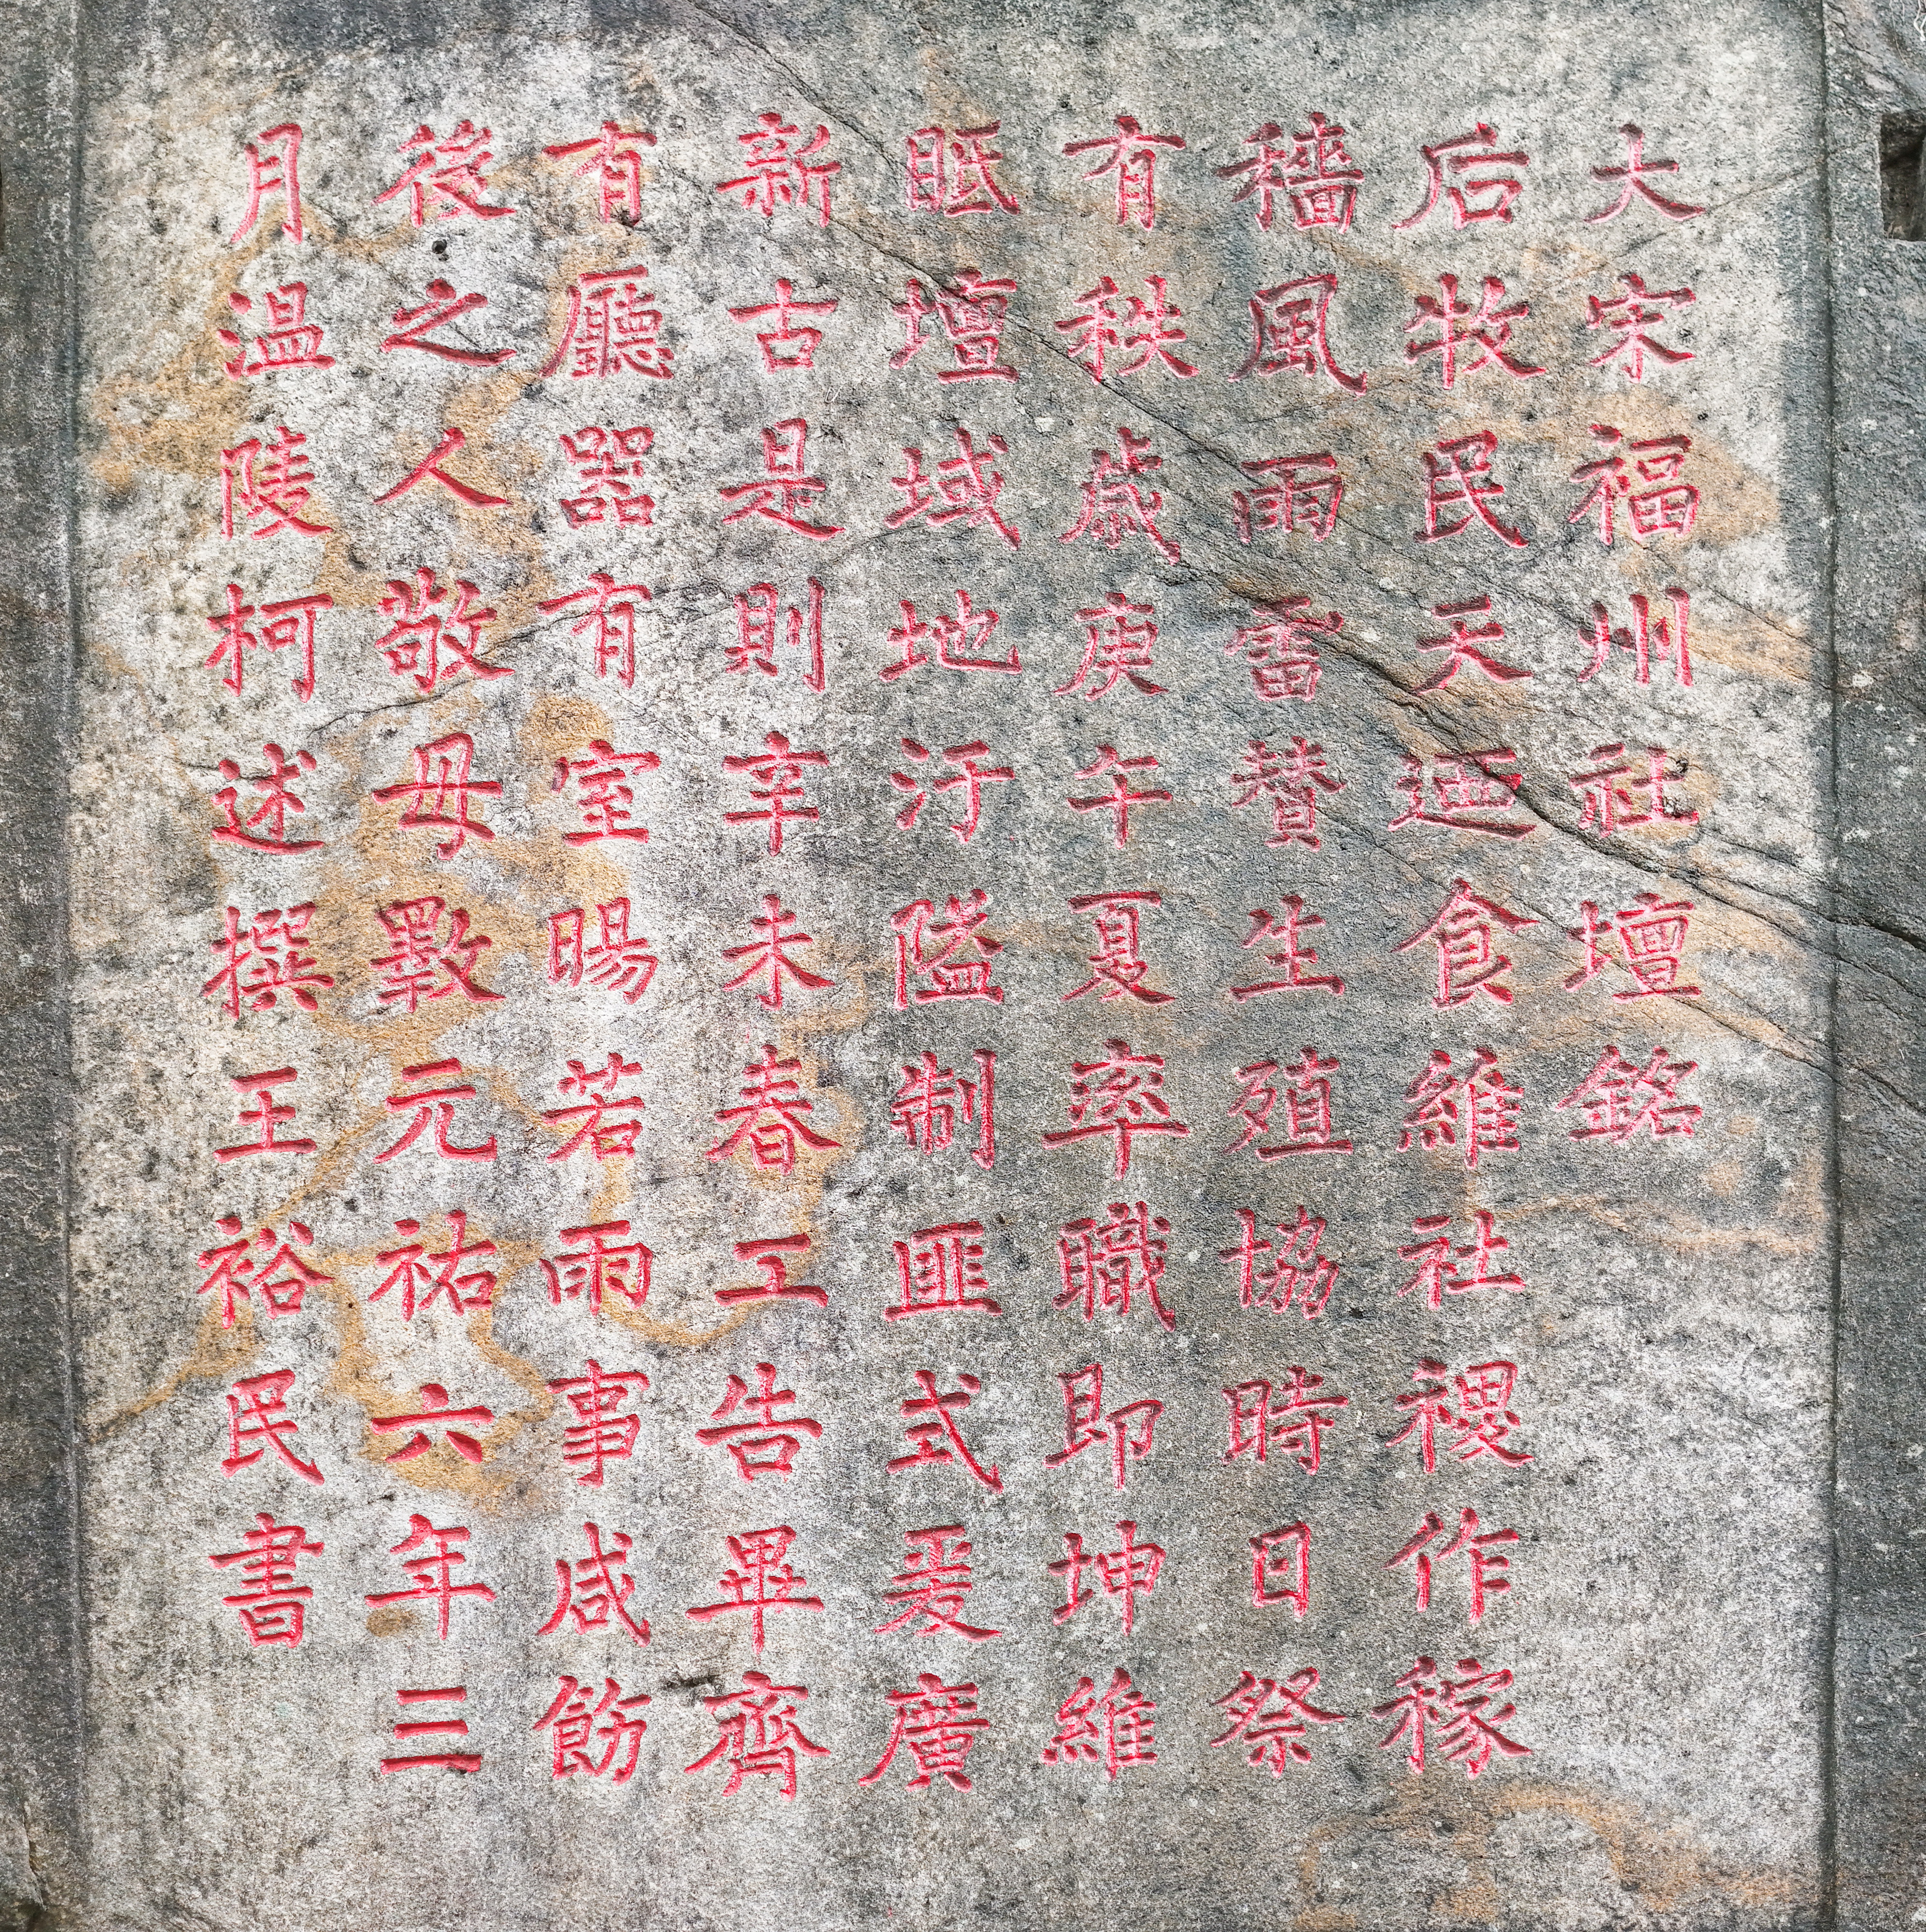 大宋福州社壇銘
后牧民天迺食維社稷作稼
穡風雨雷贊生殖協時日祭
有秩歲庚午夏率職即坤維
眡壇域地汙隘制匪式爰廣
新古是則辛未春工告畢齊
有廳器有室暘若雨事咸飭
後之人敬毋斁元祐六年三
月溫陵柯述撰王裕民書